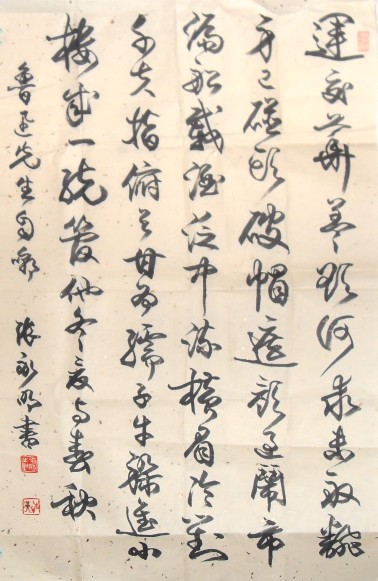 運交華蓋欲何求未敢翻
身已碰頭破帽遮顏過鬧市
漏船載酒泛中流橫眉冷對
千夫指俯首甘為孺子牛躲進小
樓成一統管他冬夏与春秋
魯迅先生自嘲 張永明書